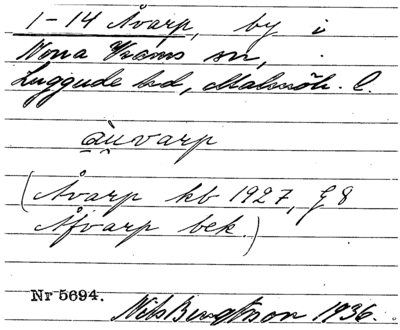 1-14 Åvarp, by i
Norra Vrams sn,
Luggude hd, Malmöh. l.
a̯ùvarp
(Åvarp kb 1927, G 8
Åfvarp bek.)
Nr 5694.
Nils Bengtsson 1936.